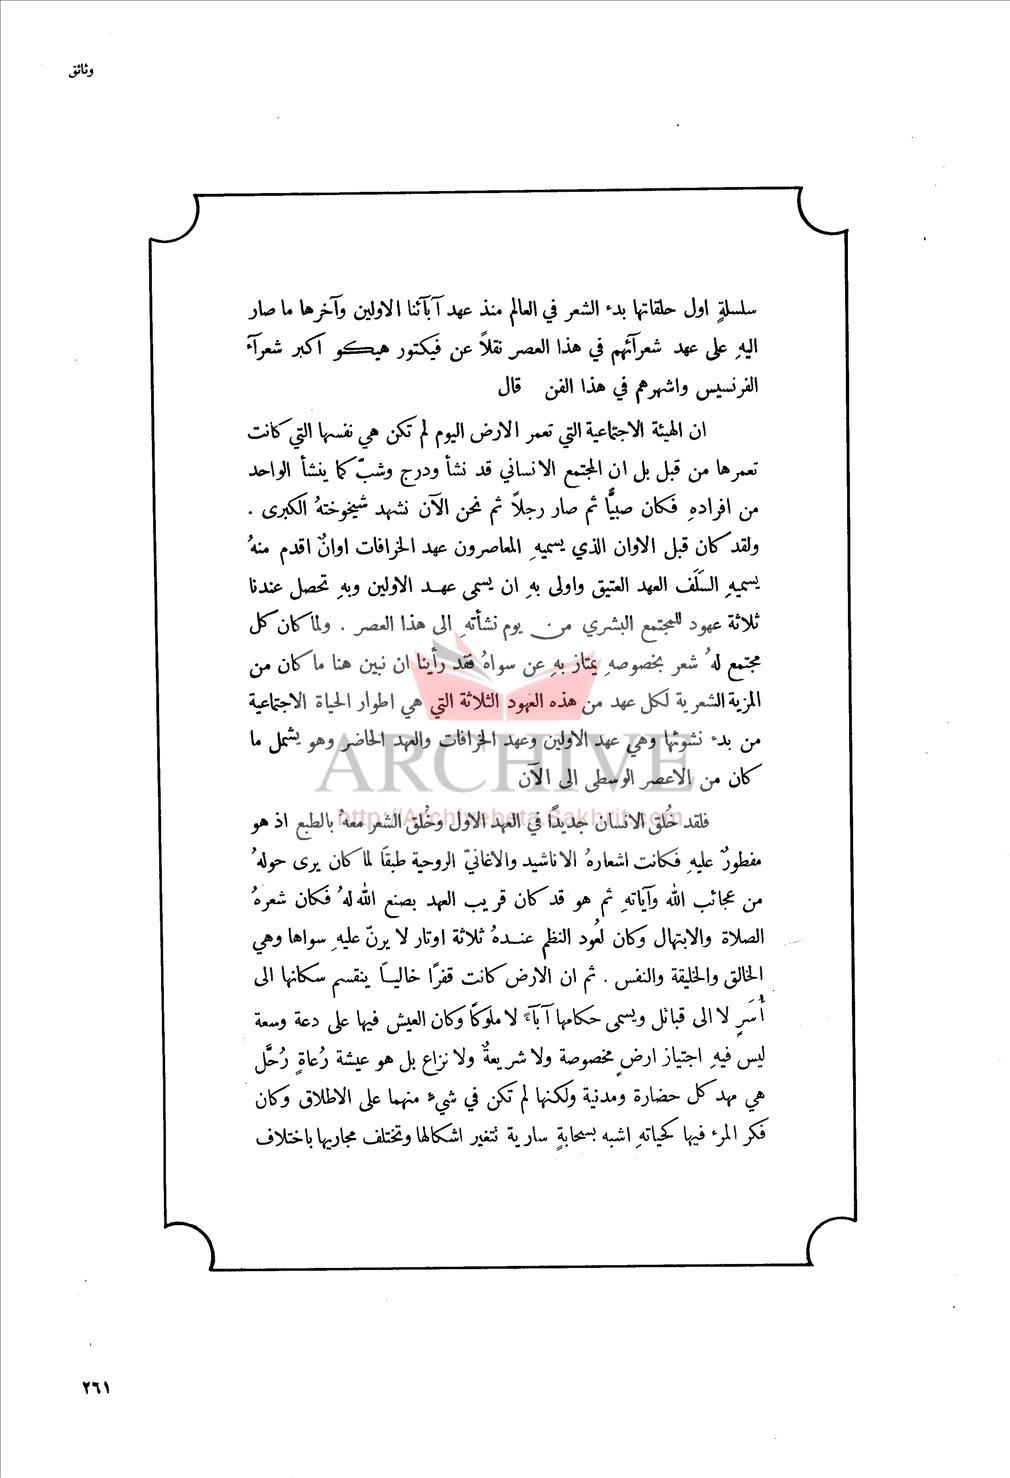 وثائق
سلسلةٍ اول حلقاتها بدء الشعر في العالم منذ عهد آبآئنا الاولين وآخرها ما صار
اليهِ على عهد شعرآئهم في هذا العصر نقلاً عن فيكتور هيكو اكبر شعرآء
الفرنسيس واشهرهم في هذا الفن قال
ان الهيئة الاجتماعية التي تعمر الارض اليوم لم تكن هي نفسها التي كانت
تعمرها من قبل بل ان المجتمع الانساني قد نشأ ودرج وشبّ كما ينشأ الواحد
من افرادهِ فكان صبيًّا ثم صار رجلاً ثم نحن الآن نشهد شيخوختهُ الكبرى .
ولقد كان قبل الاوان الذي يسميهِ المعاصرون عهد الخرافات اوانٌ اقدم منهُ
يسميهِ السَلَف العهد العتيق واولى بهِ ان يسمى عهد الاولين وبهِ تحصل عندنا
ثلاثة عهود للمجتمع البشري من يوم نشأتهِ الى هذا العصر . ولما كان كل
مجتمع لهُ شعر بخصوصهِ يمتاز بهِ عن سواهُ فقد رأينا ان نبين هنا ما كان من
المزية الشعرية لكل عهد من هذه العهود الثلاثة التي هي اطوار الحياة الاجتماعية
من بدء نشوئها وهي عهد الاولين وعهد الخرافات والعهد الحاضر وهو يشمل ما
كان من الاعصر الوسطى الى الآن
ARCHIVE
http://Archivebeta.Sakhrit.com
فلقد خُلق الانسان جديدًا في العهد الاول وخُلق الشعر معهُ بالطبع اذ هو
مفطورٌ عليهِ فكانت اشعارهُ الاناشيد والاغانيّ الروحية طبقًا لما كان يرى حولهُ
من عجائب الله وآياتهِ ثم هو قد كان قريب العهد بصنع الله لهُ فكان شعرهُ
الصلاة والابتهال وكان لعُود النظم عندهُ ثلاثة اوتار لا يرنّ عليهِ سواها وهي
الخالق والخليقة والنفس . ثم ان الارض كانت قفرًا خاليًا ينقسم سكانها الى
أُسَرٍ لا الى قبائل ويسمى حكامها آبآءً لا ملوكًا وكان العيش فيها على دعة وسعة
ليس فيهِ اجتياز ارضٍ مخصوصة ولا شريعةٌ ولا نزاع بل هو عيشة رُعاةٍ رُحَّل
هي مهد كل حضارة ومدنية ولكنها لم تكن في شيءٍ منهما على الاطلاق وكان
فكر المرء فيها كحياتهِ اشبه بسحابةٍ سارية تتغير اشكالها وتختلف مجاريها باختلاف
٢٦١